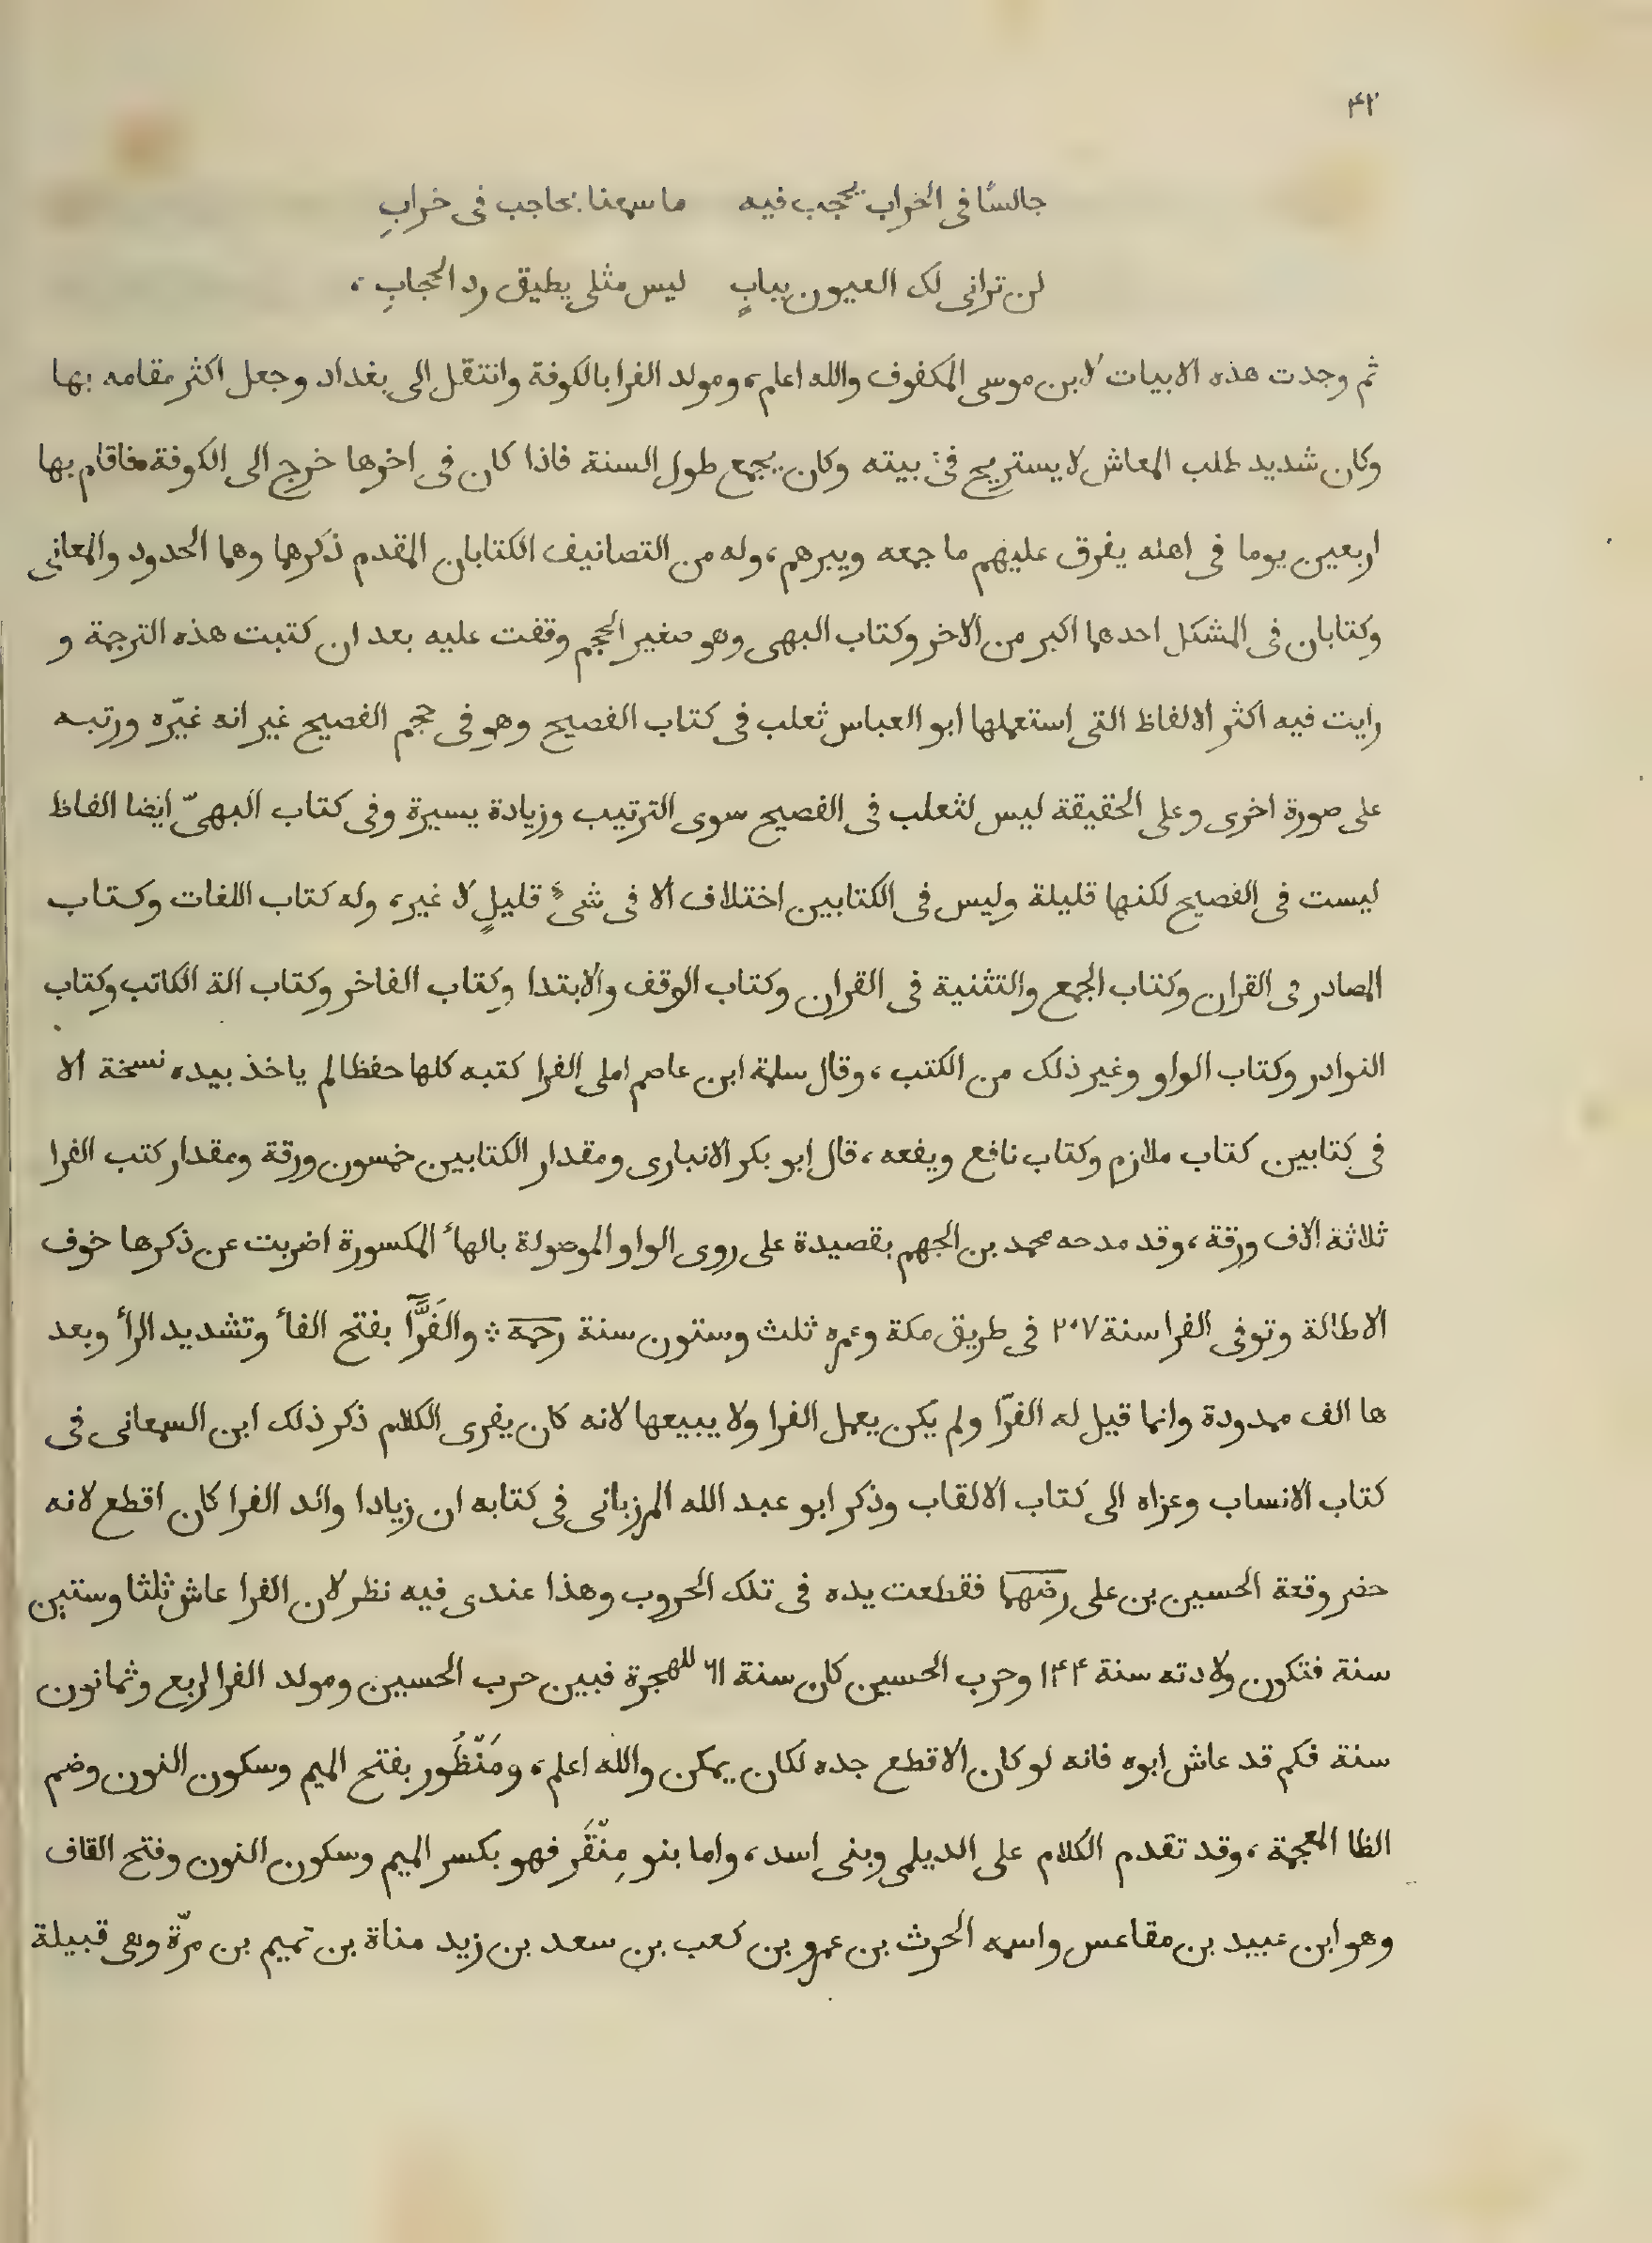 ۴۲
جالسًا فى الخراب يحجب فيه ما سمعنا بحاجب فى خرابِ
لن ترانى لك العيون ببابٍ ليس مثلى يطيق رد الحجابِ ،
ثم وجدت هذه الابيات لابن موسى المكفوف والله اعلم ، ومولد الفرا بالكوفة وانتقل الى بغداد وجعل اكثر مقامه بها
وكان شديد طلب المعاش لا يستريح فى بيته وكان يجمع طول السنة فاذا كان فى اخرها خرج الى الكوفة فاقام بها
اربعين يوما فى اهله يفرق عليهم ما جمعه ويبرهم ، وله من التصانيف الكتابان المقدم ذكرهما وهما الحدود والمعانى
وكتابان فى المشكل احدهما اكبر من الاخر وكتاب البهى وهو صغير الحجم وقفت عليه بعد ان كتبت هذه الترجمة و
رايت فيه اكثر الالفاظ التى استعملها ابو العباس ثعلب فى كتاب الفصيح وهو فى حجم الفصيح غير انه غيّره ورتبه
على صورة اخرى وعلى الحقيقة ليس لثعلب فى الفصيح سوى الترتيب وزيادة يسيرة وفى كتاب البهىّ ايضا الفاظ
ليست فى الفصيح لكنها قليلة وليس فى الكتابين اختلاف الا فى شىءٍ قليلٍ لا غير ، وله كتاب اللغات وكتاب
المصادر فى القران وكتاب الجمع والتثنية فى القران وكتاب الوقف والابتدا وكتاب الفاخر وكتاب الة الكاتب وكتاب
النوادر وكتاب الواو وغير ذلك من الكتب ، وقال سلمة ابن عاصم املى الفرا كتبه كلها حفظا لم ياخذ بيده نسخة الا
فى كتابين كتاب ملازم وكتاب نافع ويفعه ، قال ابو بكر الانبارى ومقدار الكتابين خمسون ورقة ومقدار كتب الفرا
ثلاثة الاف ورقة ، وقد مدحه محمد بن الجهم بقصيدة على روى الواو الموصولة بالهأ المكسورة اضربت عن ذكرها خوف
الاطالة وتوفى الفرا سنة ٢٠٧ فى طريق مكة وعمره ثلث وستون سنة رحمه ؛ والفَرَّآ بفتح الفأ وتشديد الرأ وبعد
ها الف ممدودة وانما قيل له الفرّا ولم يكن يعمل الفرا ولا يبيعها لانه كان يفرى الكلام ذكر ذلك ابن السمعانى فى
كتاب الانساب وعزاه الى كتاب الالقاب وذكر ابو عبد الله المرزبانى فى كتابه ان زيادا والد الفرا كان اقطع لانه
حضر وقعة الحسين بن على رضهما فقطعت يده فى تلك الحروب وهذا عندى فيه نظر لان الفرا عاش ثلثا وستين
سنة فتكون ولادته سنة ١۴۴ وحرب الحسين كان سنة ٦١ للهجرة فبين حرب الحسين ومولد الفرا اربع وثمانون
سنة فكم قد عاش ابوه فانه لو كان الاقطع جده لكان يمكن والله اعلم ، ومَنْظُور بفتح الميم وسكون النون وضم
الظا المعجمة ، وقد تقدم الكلام على الديلمى وبنى اسد ، واما بنو مِنْقَر فهو بكسر الميم وسكون النون وفتح القاف
وهو ابن عبيد بن مقاعس واسمه الحرث بن عمرو بن كعب بن سعد بن زيد مناة بن تميم بن مرّة وهى قبيلة